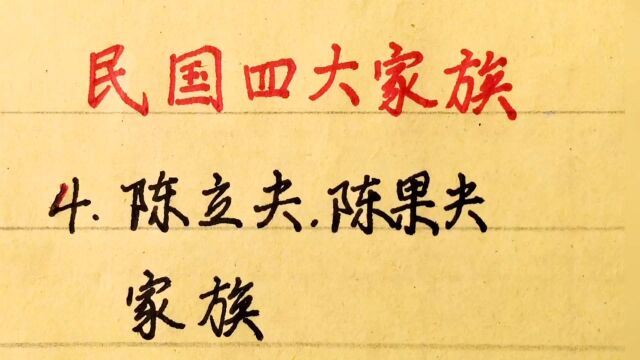 民国四大家族
4. 陈立夫.陈果夫
家族